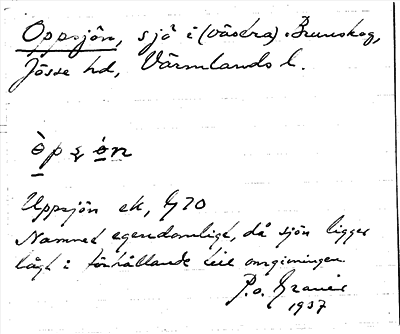 Oppsjön, sjö i (västra) Brunskog,
Jösse hd, Värmlands l.
Uppsjön ek, G70
Namnet egendomligt, då sjön ligger
lågt i förhållande till omgivningen.
P.o.
1937